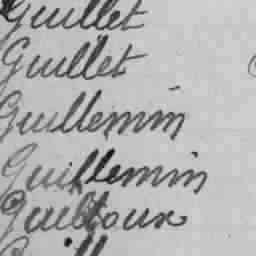 Guillet
Guillet
Guillemin
Guillemin
Guilloux